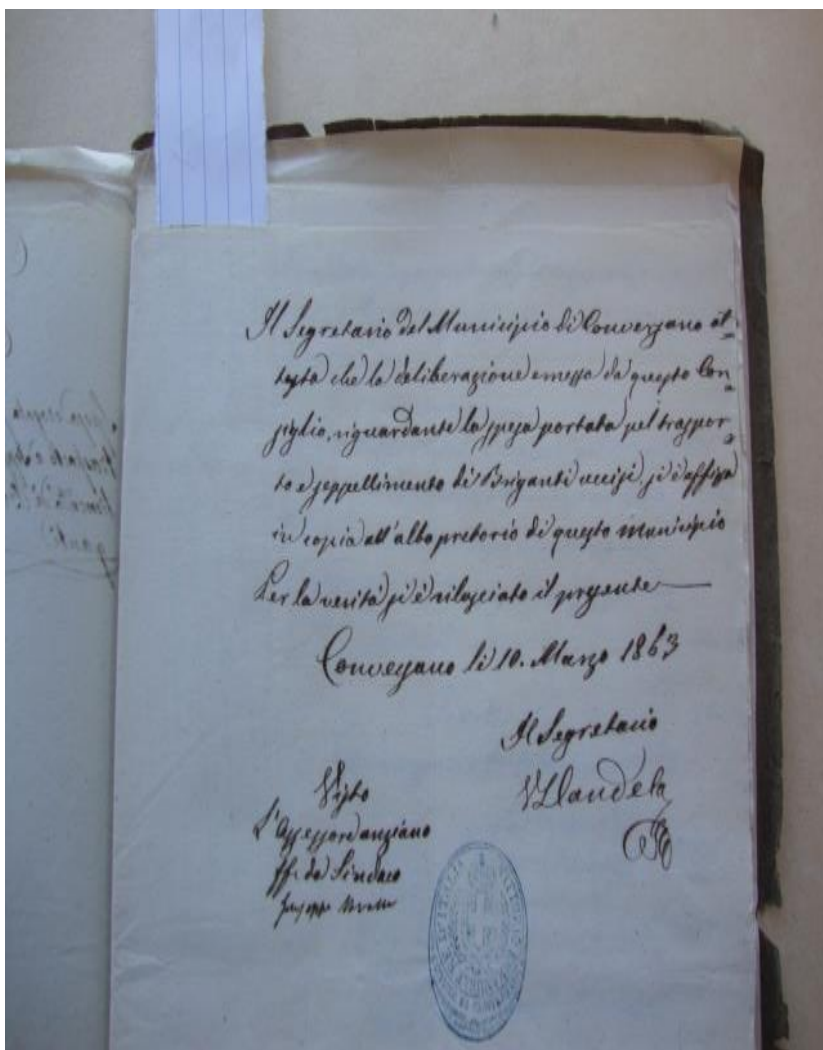 Il Segretario del Municipio di Conversano at=
testa che la deliberazione emessa da questo Con=
siglio, riguardante la spesa portata pel traspor=
to e seppellimento di Briganti uccisi, si è affissa
in copia all'albo pretorio di questo Municipio
Per la verità si è rilasciato il presente —
Conversano li 10. Marzo 1863
Il Segretario
Visto
L'Assessore anziano
ff. da Sindaco
Giuseppe
D'ITALIA